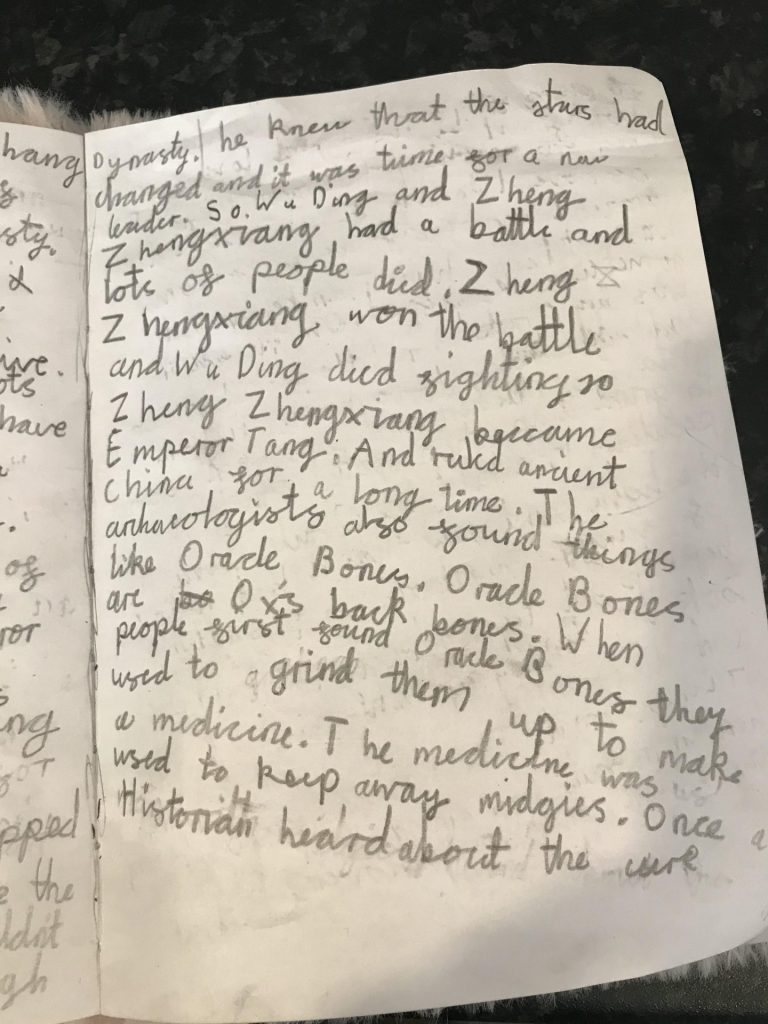 hang
sty.
ive.
ots
have
of
ror
ng
pped
the
ldn't
gh
Dynasty. he knew that the stars had
changed and it was time for a new
leader. So. Wu Ding and Zheng
Zhengxiang had a battle and
lots of people died. Zheng
Zhengxiang won the battle
and Wu Ding died fighting so
Zheng Zhengxiang became
Emperor Tang. And ruled ancient
China for a long time. The
archaeologists also found things
like Oracle Bones. Oracle Bones
are Ox's back bones. When
people first found Oracle Bones they
used to grind them up to make
a medicine. The medicine was
used to keep away midgies. Once a
Historian heard about the cure